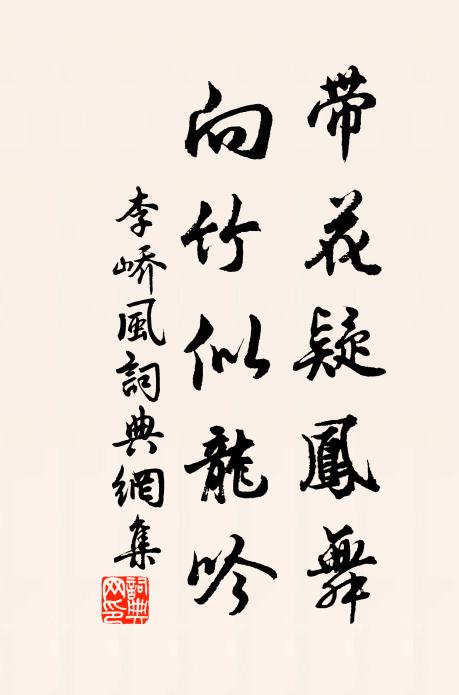 帶花疑鳳舞
向竹似龍吟
李嶠風詞典網集
詞典网印